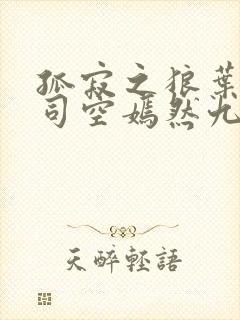 孤寂之狼葉
司空嫣然九
天醉輕語